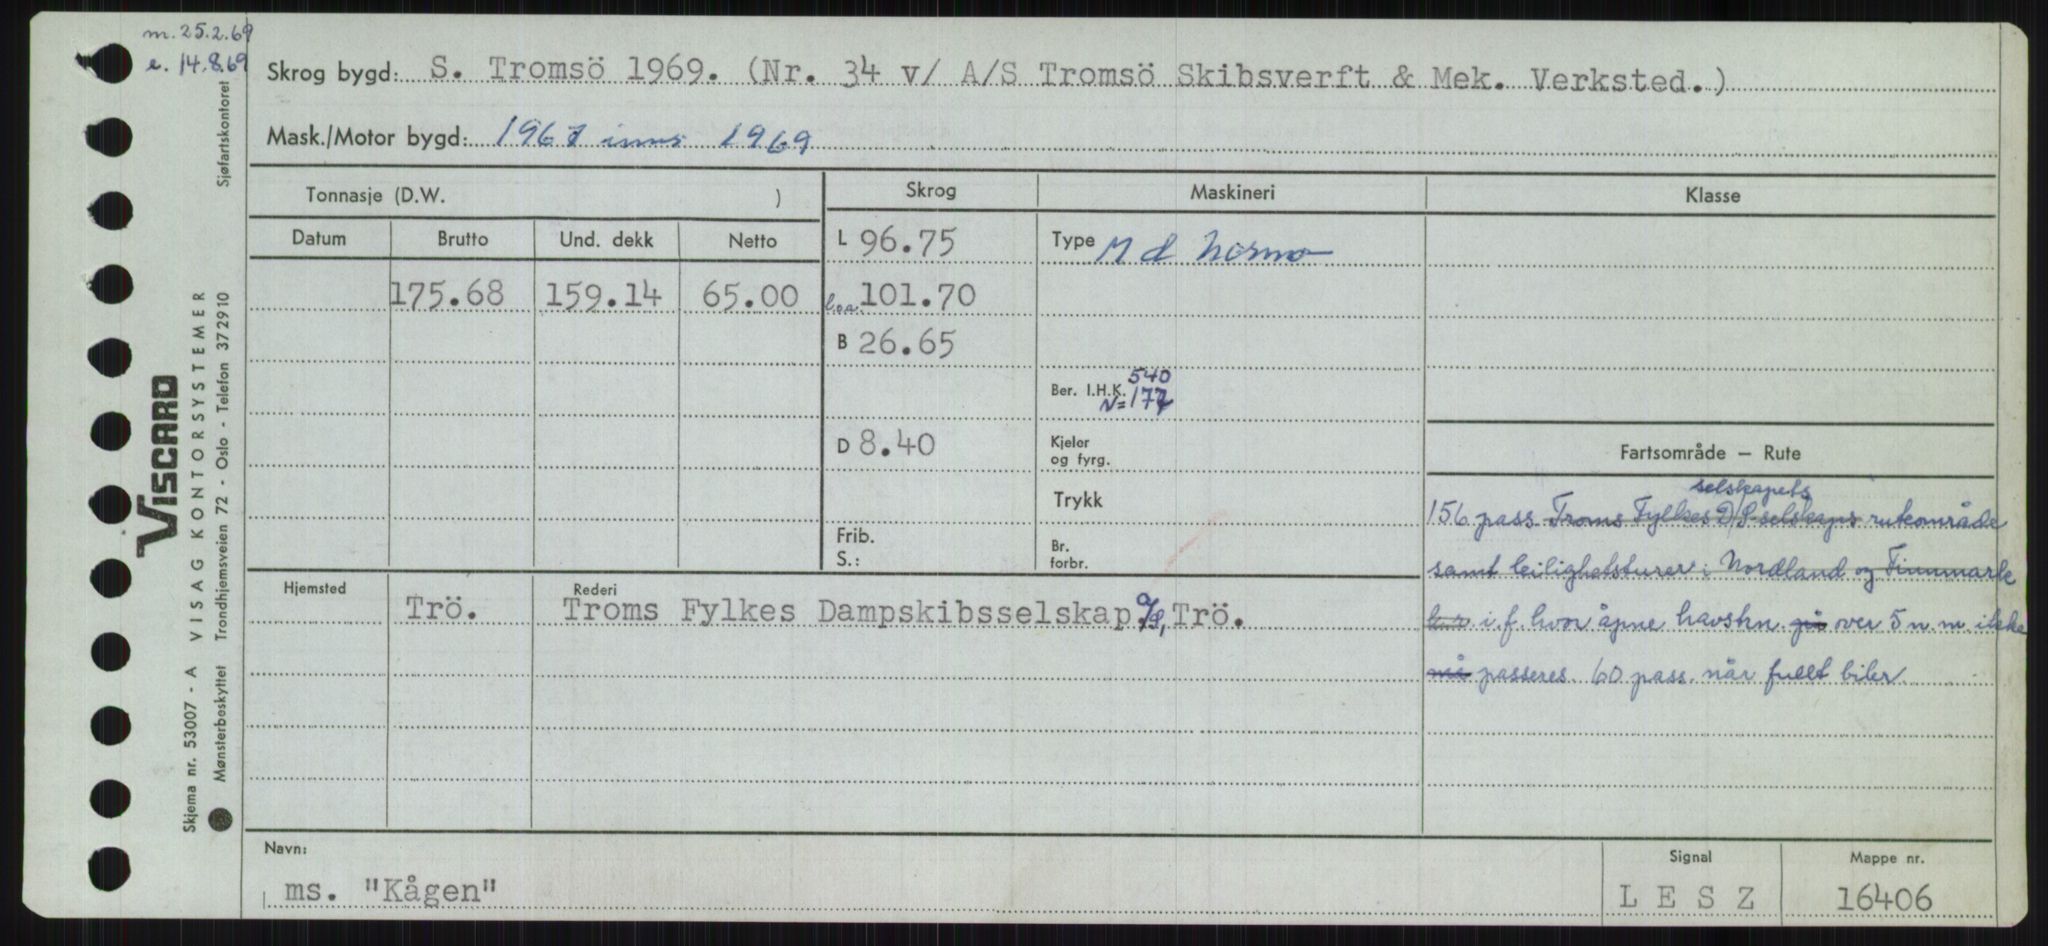 m. 25.2.69
e. 14.8.69
Skrog bygd: S. Tromsö 1969. (Nr. 34 v/ A/S Tromsö Skibsverft & Mek. Verksted.)
Mask./Motor bygd: 1967 inns 1969
Tonnasje (D.W. )
Skrog
Maskineri
Klasse
Datum Brutto Und. dekk Netto
175.68 159.14 65.00
L 96.75
loa. 101.70
B 26.65
D 8.40
Frib.
S.:
Type M d Normo
540
Ber. I.H.K.
N=177
Kjeler
og fyrg.
Trykk
Br.
forbr.
Fartsområde – Rute
selskapets
156 pass Troms Fylkes D/S selskaps ruteområde
samt leilighetsturer i Nordland og Finnmark
i.f. hvor åpne havstrn. gå over 5 n. m. ikke
må passeres. 60 pass. når fullt biler
Hjemsted
Rederi
Trö. Troms Fylkes Dampskibsselskap a/s, Trö.
Navn:
ms. "Kågen"
Signal
L E S Z
Mappe nr.
16406
VISCARD
VISAG KONTORSYSTEMER
Skjema nr. 53007 - A
Sjøfartskontoret
Mønsterbeskyttet Trondhjemsveien 72 - Oslo - Telefon 372910